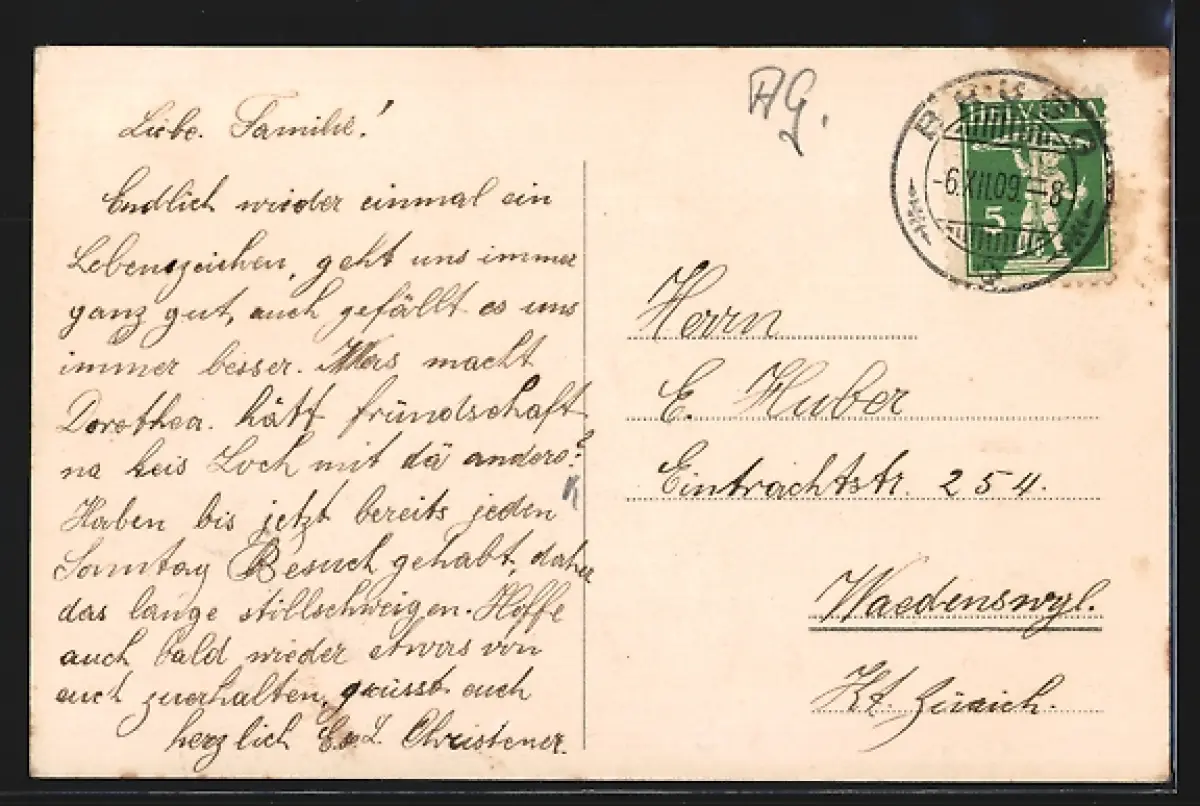 Liebe Familie!
Endlich wieder einmal ein
Lebenszeichen, geht uns immer
ganz gut, auch gefällt es uns
immer besser. Was macht
Dorothea. hätt fründschaft
na keis Loch mit dä anders?
Haben bis jetzt bereits jeden
Sonntag Besuch gehabt, daher
das lange stillschweigen. Hoffe
auch bald wieder etwas von
euch zuerhalten, grüsst euch
herzlich E. L. Christener.
AG.
HELVETIA
5
-6.XII.09.=8
Herrn
E. Huber
Eintrachtstr. 254.
Waedenswyl.
Kt. Zürich.